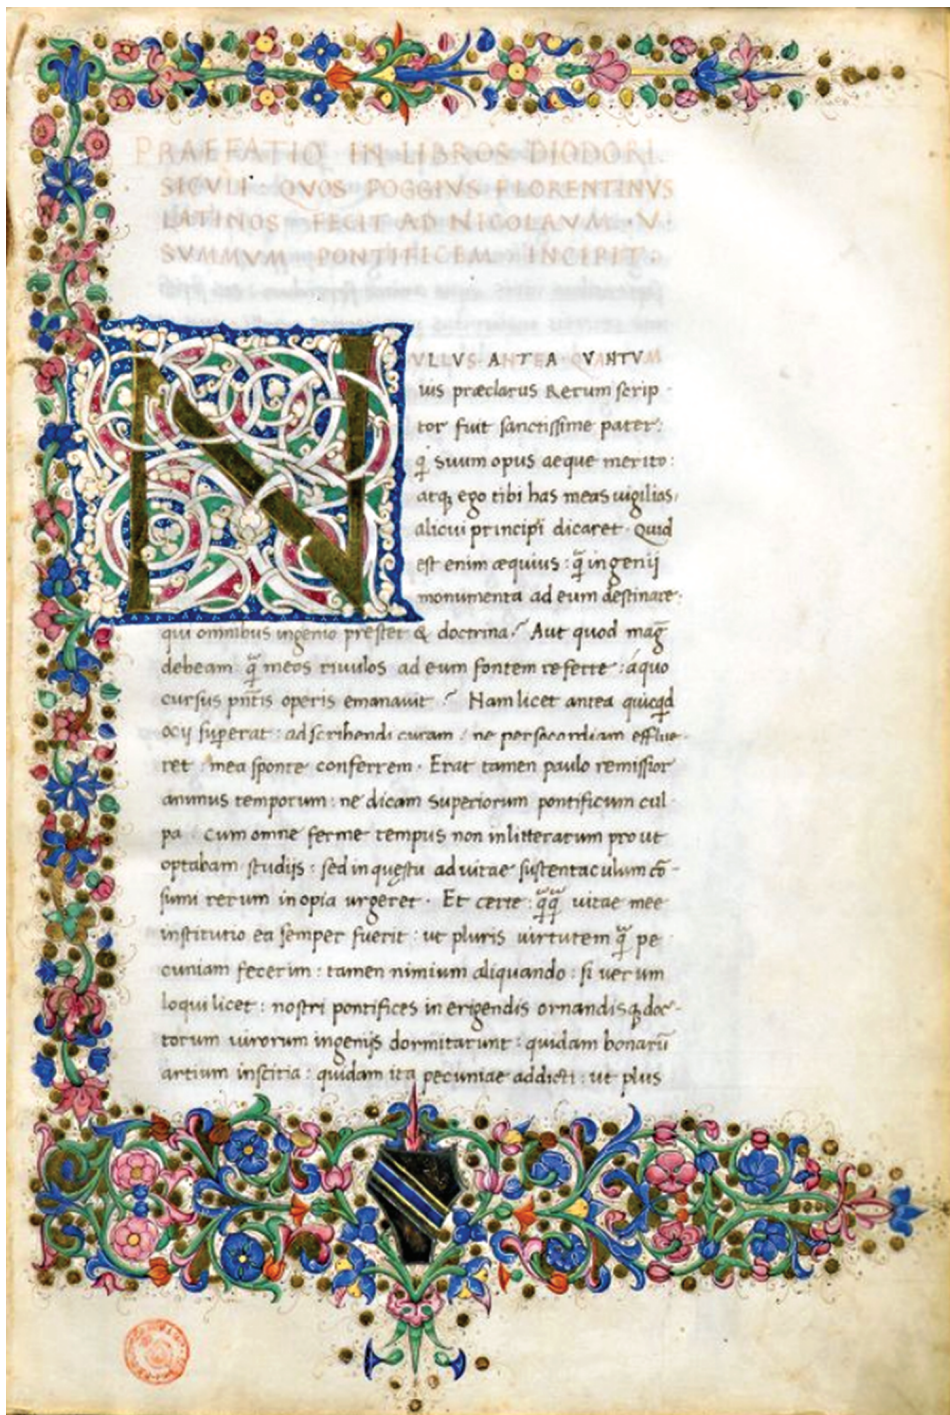 PRAEFATIO IN LIBROS DIODORI
SICVLI · QVOS POGGIVS FLORENTINVS
LATINOS FECIT AD NICOLAVM · V ·
SVMMVM PONTIFICEM INCIPIT :
NVLLVS ANTEA
uis præclarus Rerum scrip
tor fuit sanctissime pater:
q̃ suum opus aeque merito:
atq; ego tibi has meas uigilias,
alicui principi dicaret · Quid
est enim æquius : q̃ ingenij
monumenta ad eum destinare:
qui omnibus ingenio prestet & doctrina? Aut quod mag̃
debeam q̃ meos riuulos ad eum fontem referre : á quo
cursus pñtis operis emanauit ? Nam licet antea quicqd
ocij superat : ad scribendi curam : ne per secordiam efflue
ret : mea sponte conferrem · Erat tamen paulo remissior
animus temporum : ne dicam superiorum pontificum cul
pa cum omne ferme tempus non in litterarum pro ut
optabam studijs : sed in quęstu ad uitae sustentaculum cõ
sumi rerum inopia urgeret · Et certe : q̃q̃ uitae mee
institutio ea semper fuerit : ut pluris uirtutem q̃ pe
cuniam fecerim : tamen nimium aliquando : si uerum
loqui licet : nostri pontifices in erigendis ornandisq; doc
torum uirorum ingenijs dormitarunt : quidam bonarũ
artium inscitia : quidam ita pecuniae addicti : ut plus